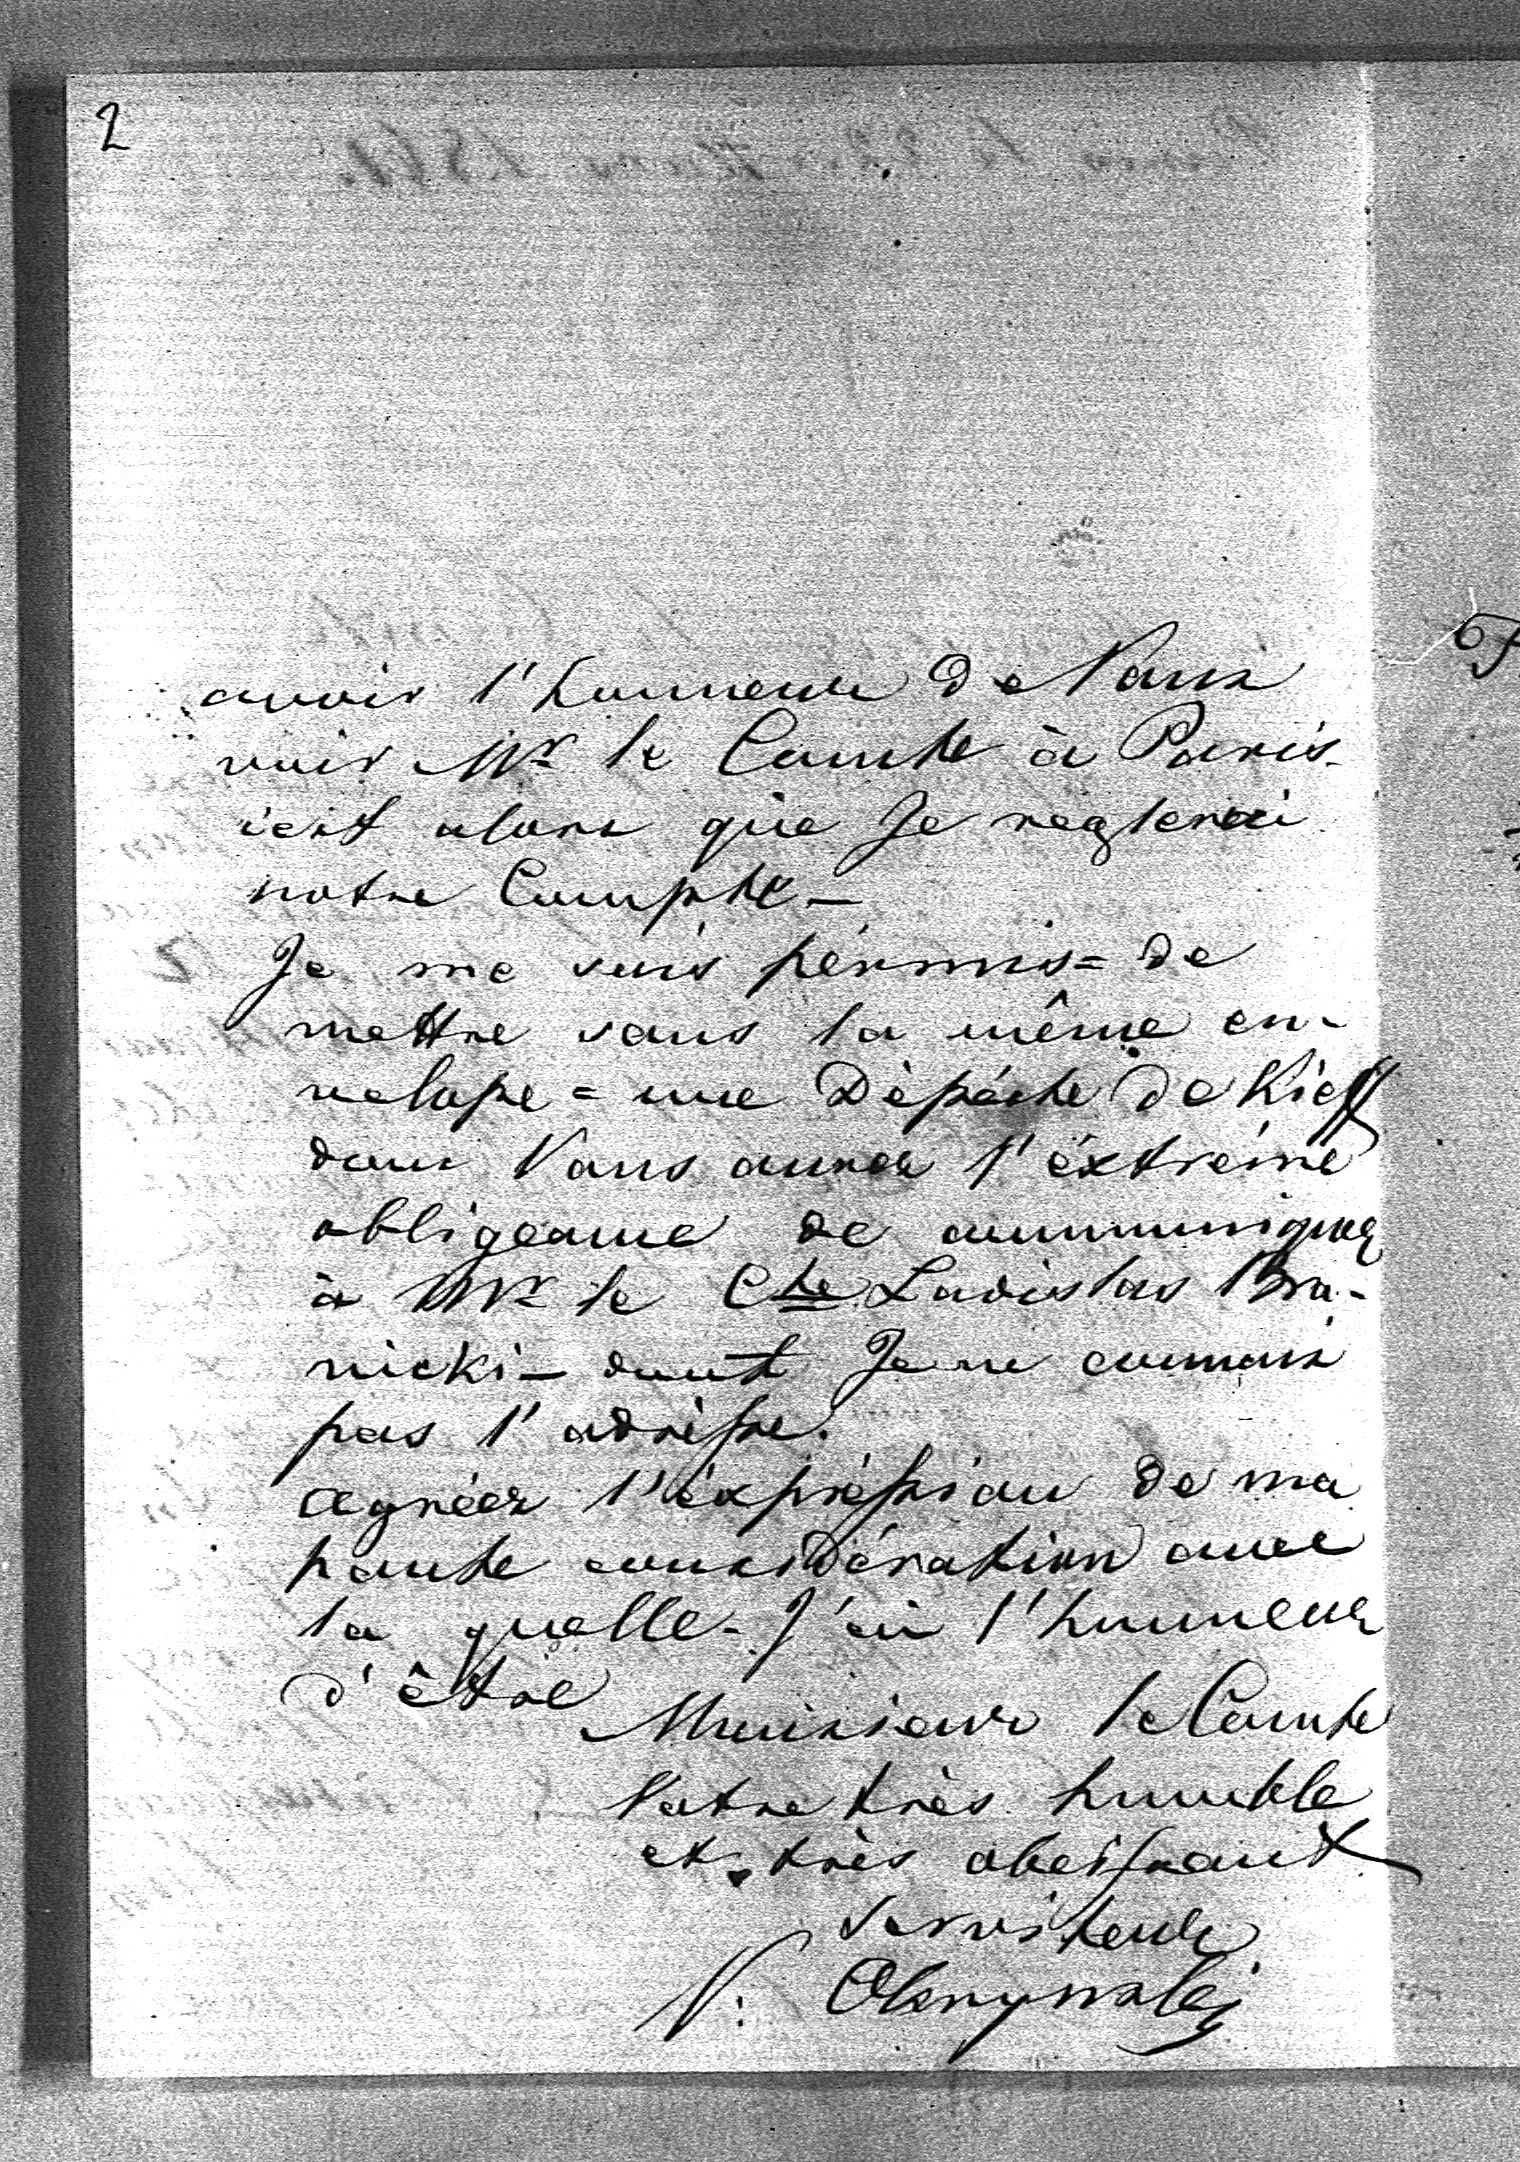 2
avoir l'honneur de Vous
voir Mr le Comte à Paris
cest alors que Je reglerai
notre Compte –
Je me suis pérmis = de
mettre sous la même en-
velope = une Dèpéche de Kieff
dont Vous aurez l'éxtréme
obligeance de communiquer
à Mr le Cte Ladislas Bra-
nicki – dont Je ne connais
pas l'adrèsse.
agréez l'éxpréssion de ma
haute considération avec
la quelle - J'ai l'honneur
d'être
Monsieur le Comte
Votre très humble
et très obeissant
Serviteur